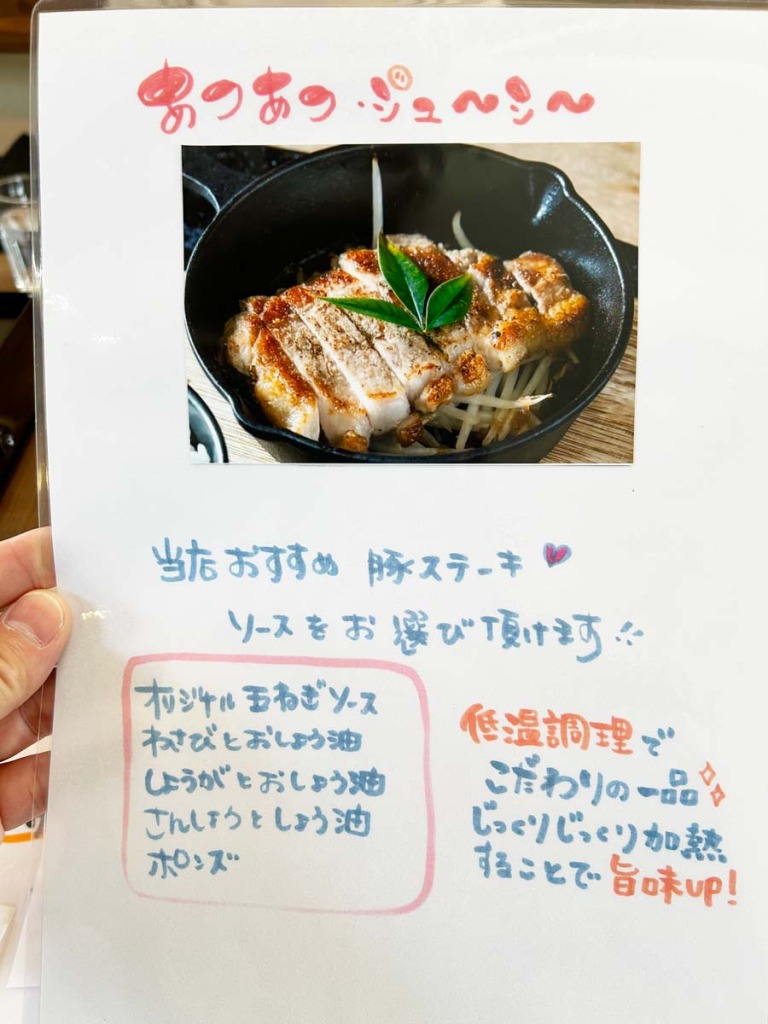 あつあつ・ジュ〜シ〜
当店おすすめ 豚ステーキ
ソースをお選び頂けます
オリジナル玉ねぎソース
わさびとおしょう油
しょうがとおしょう油
さんしょうとしょう油
ポンズ
低温調理で
こだわりの一品
じっくりじっくり加熱
することで旨味up!